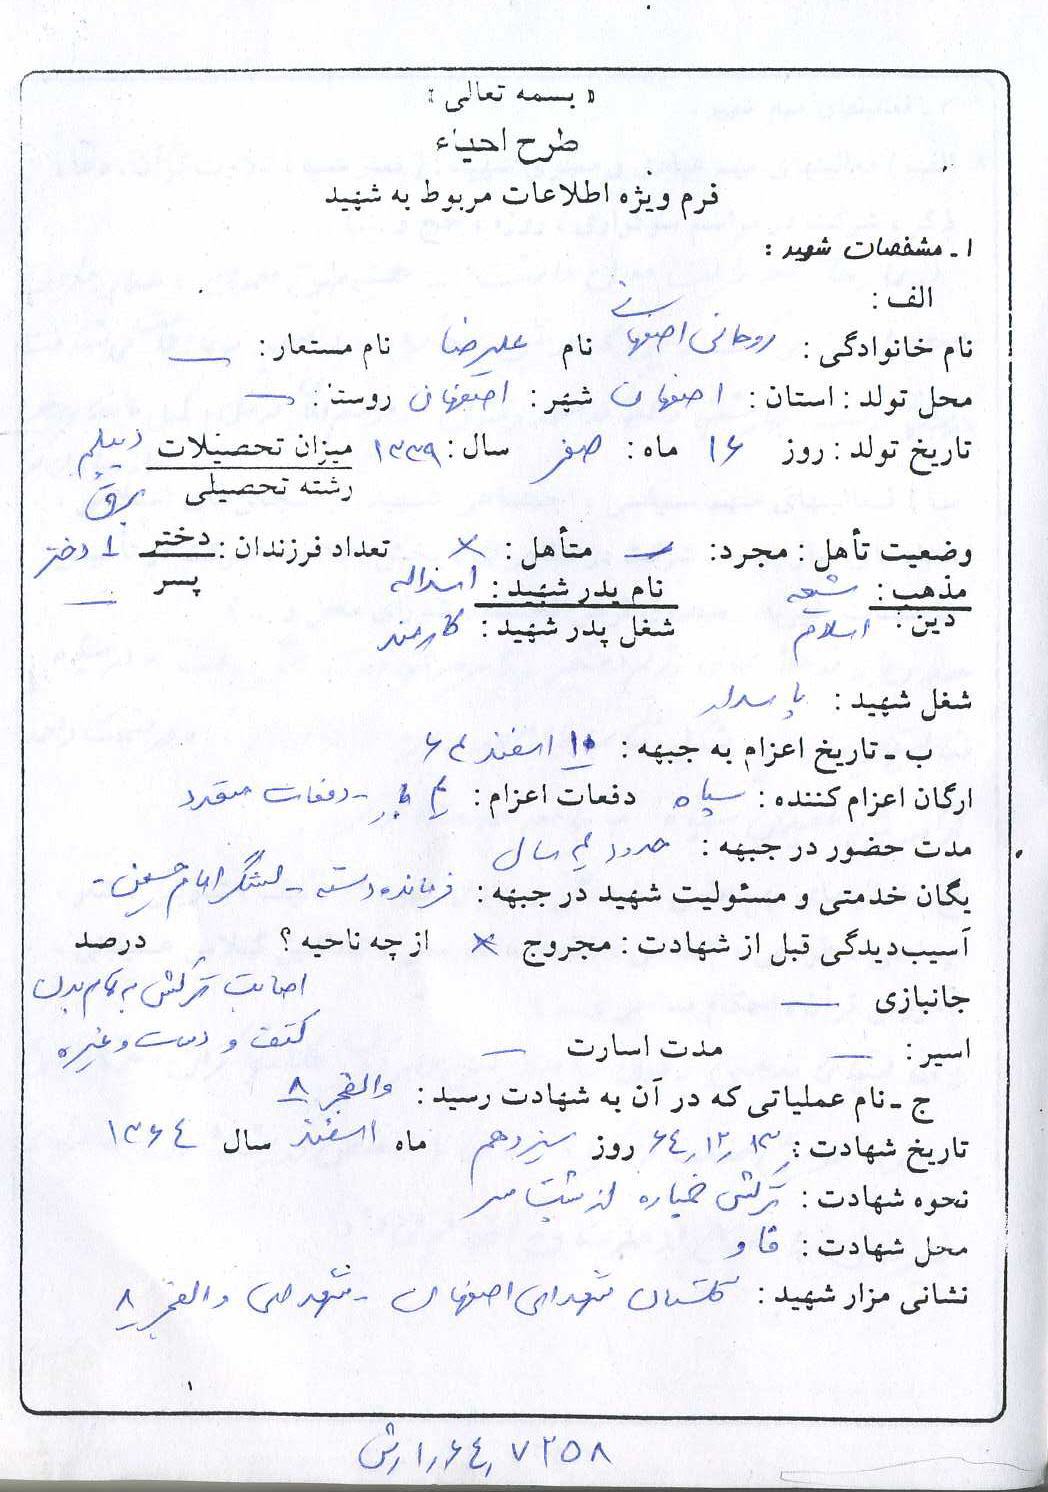 « بسمه تعالی »
طرح احیاء
فرم ویژه اطلاعات مربوط به شهید
۱ ـ مشخصات شهید :
الف :
نام خانوادگی : روحانی اصفهانی نام علیرضا نام مستعار : ـــ
محل تولد : استان : اصفهان شهر : اصفهان روستا : ـــ
تاریخ تولد : روز ۱۶ ماه : صفر سال : ۱۳۳۹ میزان تحصیلات دیپلم
رشته تحصیلی برق
وضعیت تأهل : مجرد : ـــ متأهل : × تعداد فرزندان : دختر ۱ دختر
مذهب : شیعه نام پدر شهید : اسداله پسر ـــ
دین : اسلام شغل پدر شهید : کارمند
شغل شهید : پاسدار
ب ـ تاریخ اعزام به جبهه : ۱۰ اسفند ۶۴
ارگان اعزام کننده : سپاه دفعات اعزام : ۴ بار ـ دفعات متعدد
مدت حضور در جبهه : حدود ۴ سال
یگان خدمتی و مسئولیت شهید در جبهه : فرمانده دسته ـ لشگر امام حسین
آسیب‌دیدگی قبل از شهادت : مجروح × از چه ناحیه ؟ درصد
جانبازی ـــ اصابت ترکش به تمام بدن
کتف و دست و غیره
اسیر : ـــ مدت اسارت ـــ
ج ـ نام عملیاتی که در آن به شهادت رسید : والفجر ۸
تاریخ شهادت : ۶۴٫۱۲٫۱۳ روز سیزدهم ماه اسفند سال ۱۳۶٤
نحوه شهادت : ترکش خمپاره از پشت سر
محل شهادت : فاو
نشانی مزار شهید : گلستان شهدای اصفهان ـ شهدای والفجر ۸
۱
۷۲۵۸